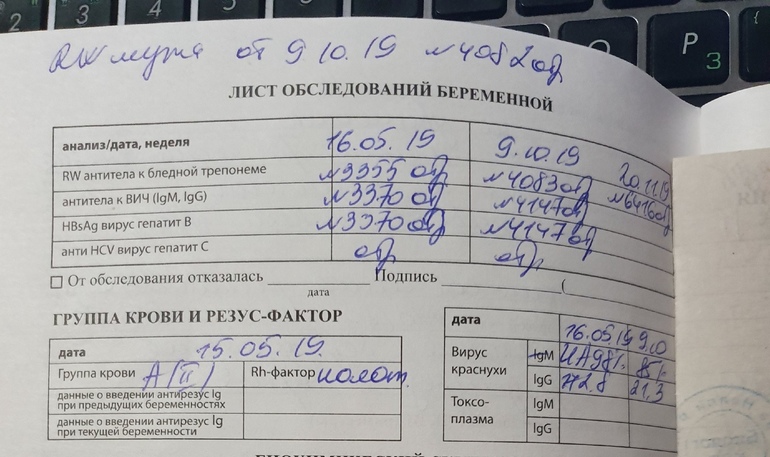 RW мужа от 9 10. 19 №4082 отр
ЛИСТ ОБСЛЕДОВАНИЙ БЕРЕМЕННОЙ
анализ/дата, неделя 16.05. 19 9.10.19 20.11.19
RW антитела к бледной трепонеме №3355 отр №4083 отр №6416 отр
антитела к ВИЧ (IgM, IgG) №3370 отр №4147 отр
HBsAg вирус гепатит В №3370 отр №4147 отр
анти HCV вирус гепатит С отр отр
От обследования отказалась Подпись (
дата
ГРУППА КРОВИ И РЕЗУС-ФАКТОР
дата 15.05. 19.
Группа крови А(II) Rh-фактор полож.
данные о введении антирезус Ig
при предыдущих беременностях
данные о введении антирезус Ig
при текущей беременности
дата 16.05.19 9.10
Вирус краснухи IgM
IgG 21,3
Токсо-плазма IgM
IgG